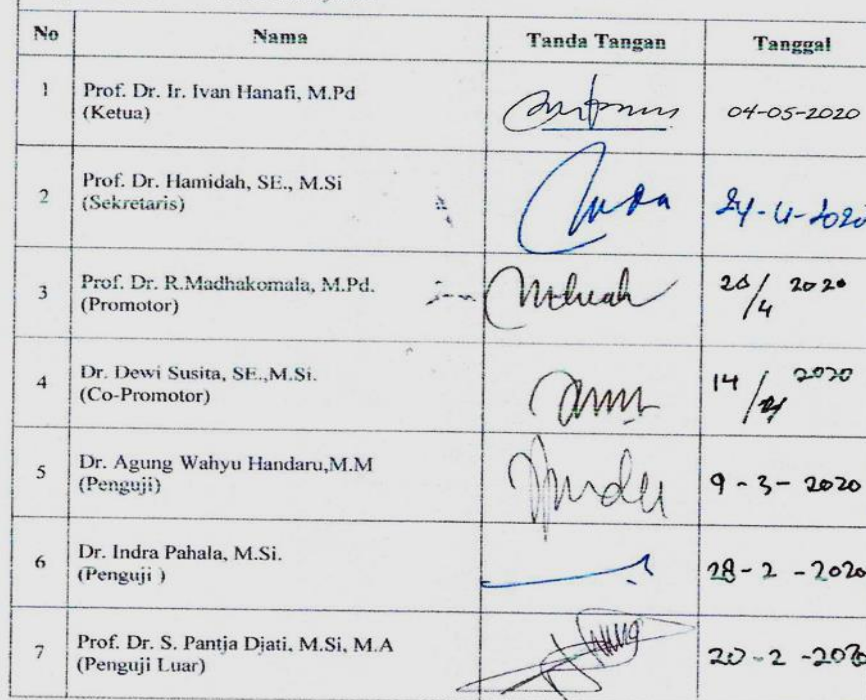 No Nama Tanda Tangan Tanggal
1 Prof. Dr. Ir. Ivan Hanafi, M.Pd
(Ketua)
04-05-2020
2 Prof. Dr. Hamidah, SE., M.Si
(Sekretaris)
24-4-2020
3 Prof. Dr. R.Madhakomala, M.Pd.
(Promotor)
20/4 2020
4 Dr. Dewi Susita, SE.,M.Si.
(Co-Promotor)
14/4 2020
5 Dr. Agung Wahyu Handaru,M.M
(Penguji)
9-3-2020
6 Dr. Indra Pahala, M.Si.
(Penguji )
28-2-2020
7 Prof. Dr. S. Pantja Djati, M.Si, M.A
(Penguji Luar)
20-2-2020